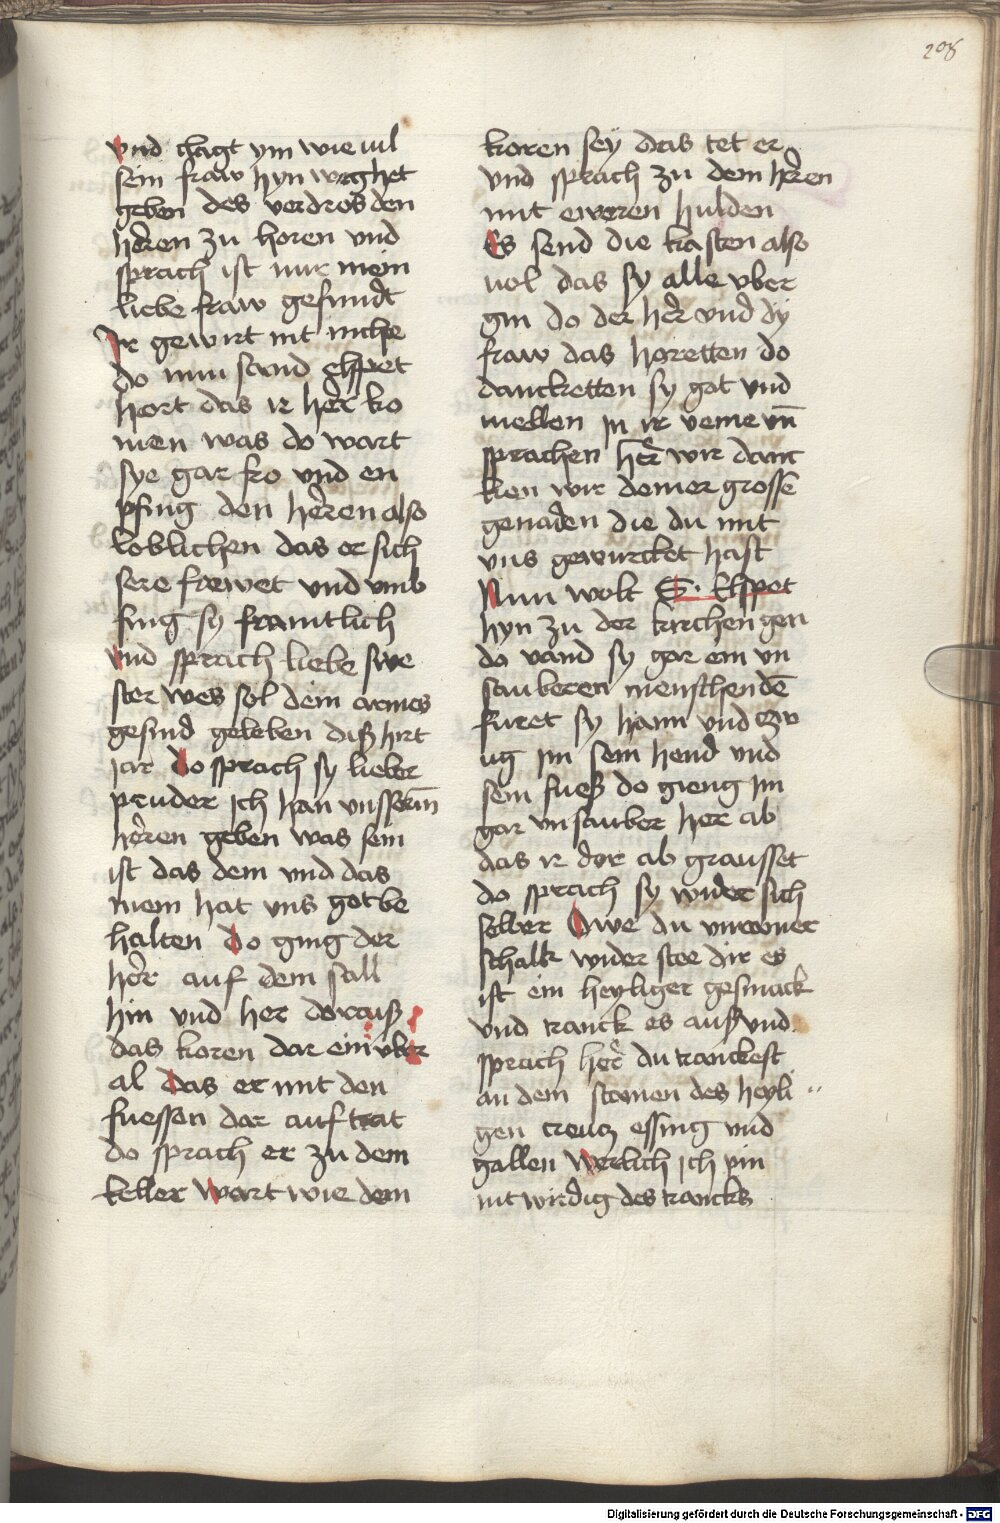 208
vnd chagt ym wie uil
sein fraw hyn weghet
geben des verdros den
heren zu horen vnd
sprach ist nur mein
liebe fraw gesundt
Jr gewirt nit nichcz
do nun sand elspet
hort das ir her ko
men was do wart
sye gar fro vnd en
pfing den heren also
loblichen das er sich
sere frewet vnd vmb
fing sy frauntlich
vnd sprach liebe swe
ster wes sol dein armes
gesind geleben diß hirt
iar do sprach sy lieber
pruder ich han vnsserm̄
heren geben was sein
ist das dein vnd das
mein hat vns got be
halten do ging der
her auf dem sall
hin vnd her do rauß
das koren dar ein vber
al das er mit den
fuessen dar auf trat
do sprach er zu dem
keller wart wie dem
koren sey das tet er
vnd sprach zu dem heren
mit eweren hulden
Es send die kasten also
uol das sy alle vber
gin do der her vnd dy
fraw das horetten do
danckretten sy got vnd
uiellen in ir ueme vn̄
sprachen her wir danc
ken wir deiner grossē
genaden die du mit
vns gewurcket hast
Nun wolt S. Elspet
hyn zu der kirchen gen
do uand sy gar ein vn
sauberen menschen dē
furet sy haim vnd czw
ug im sein hend vnd
sein fueß do gieng im
gar vnsauber her ab
das ir dor ab grausset
do sprach sy wider sich
selber Owe du vnrainer
schalk wider stee dir es
ist ein heyliger gesmack
vnd tranck es auß vnd
sprach her du tranckest
an dem stamen des heyli
gen creucz essing vnd
gallen Werlich ich pin
nit wirdig des trancks
Digitalisierung gefördert durch die Deutsche Forschungsgemeinschaft - DFG